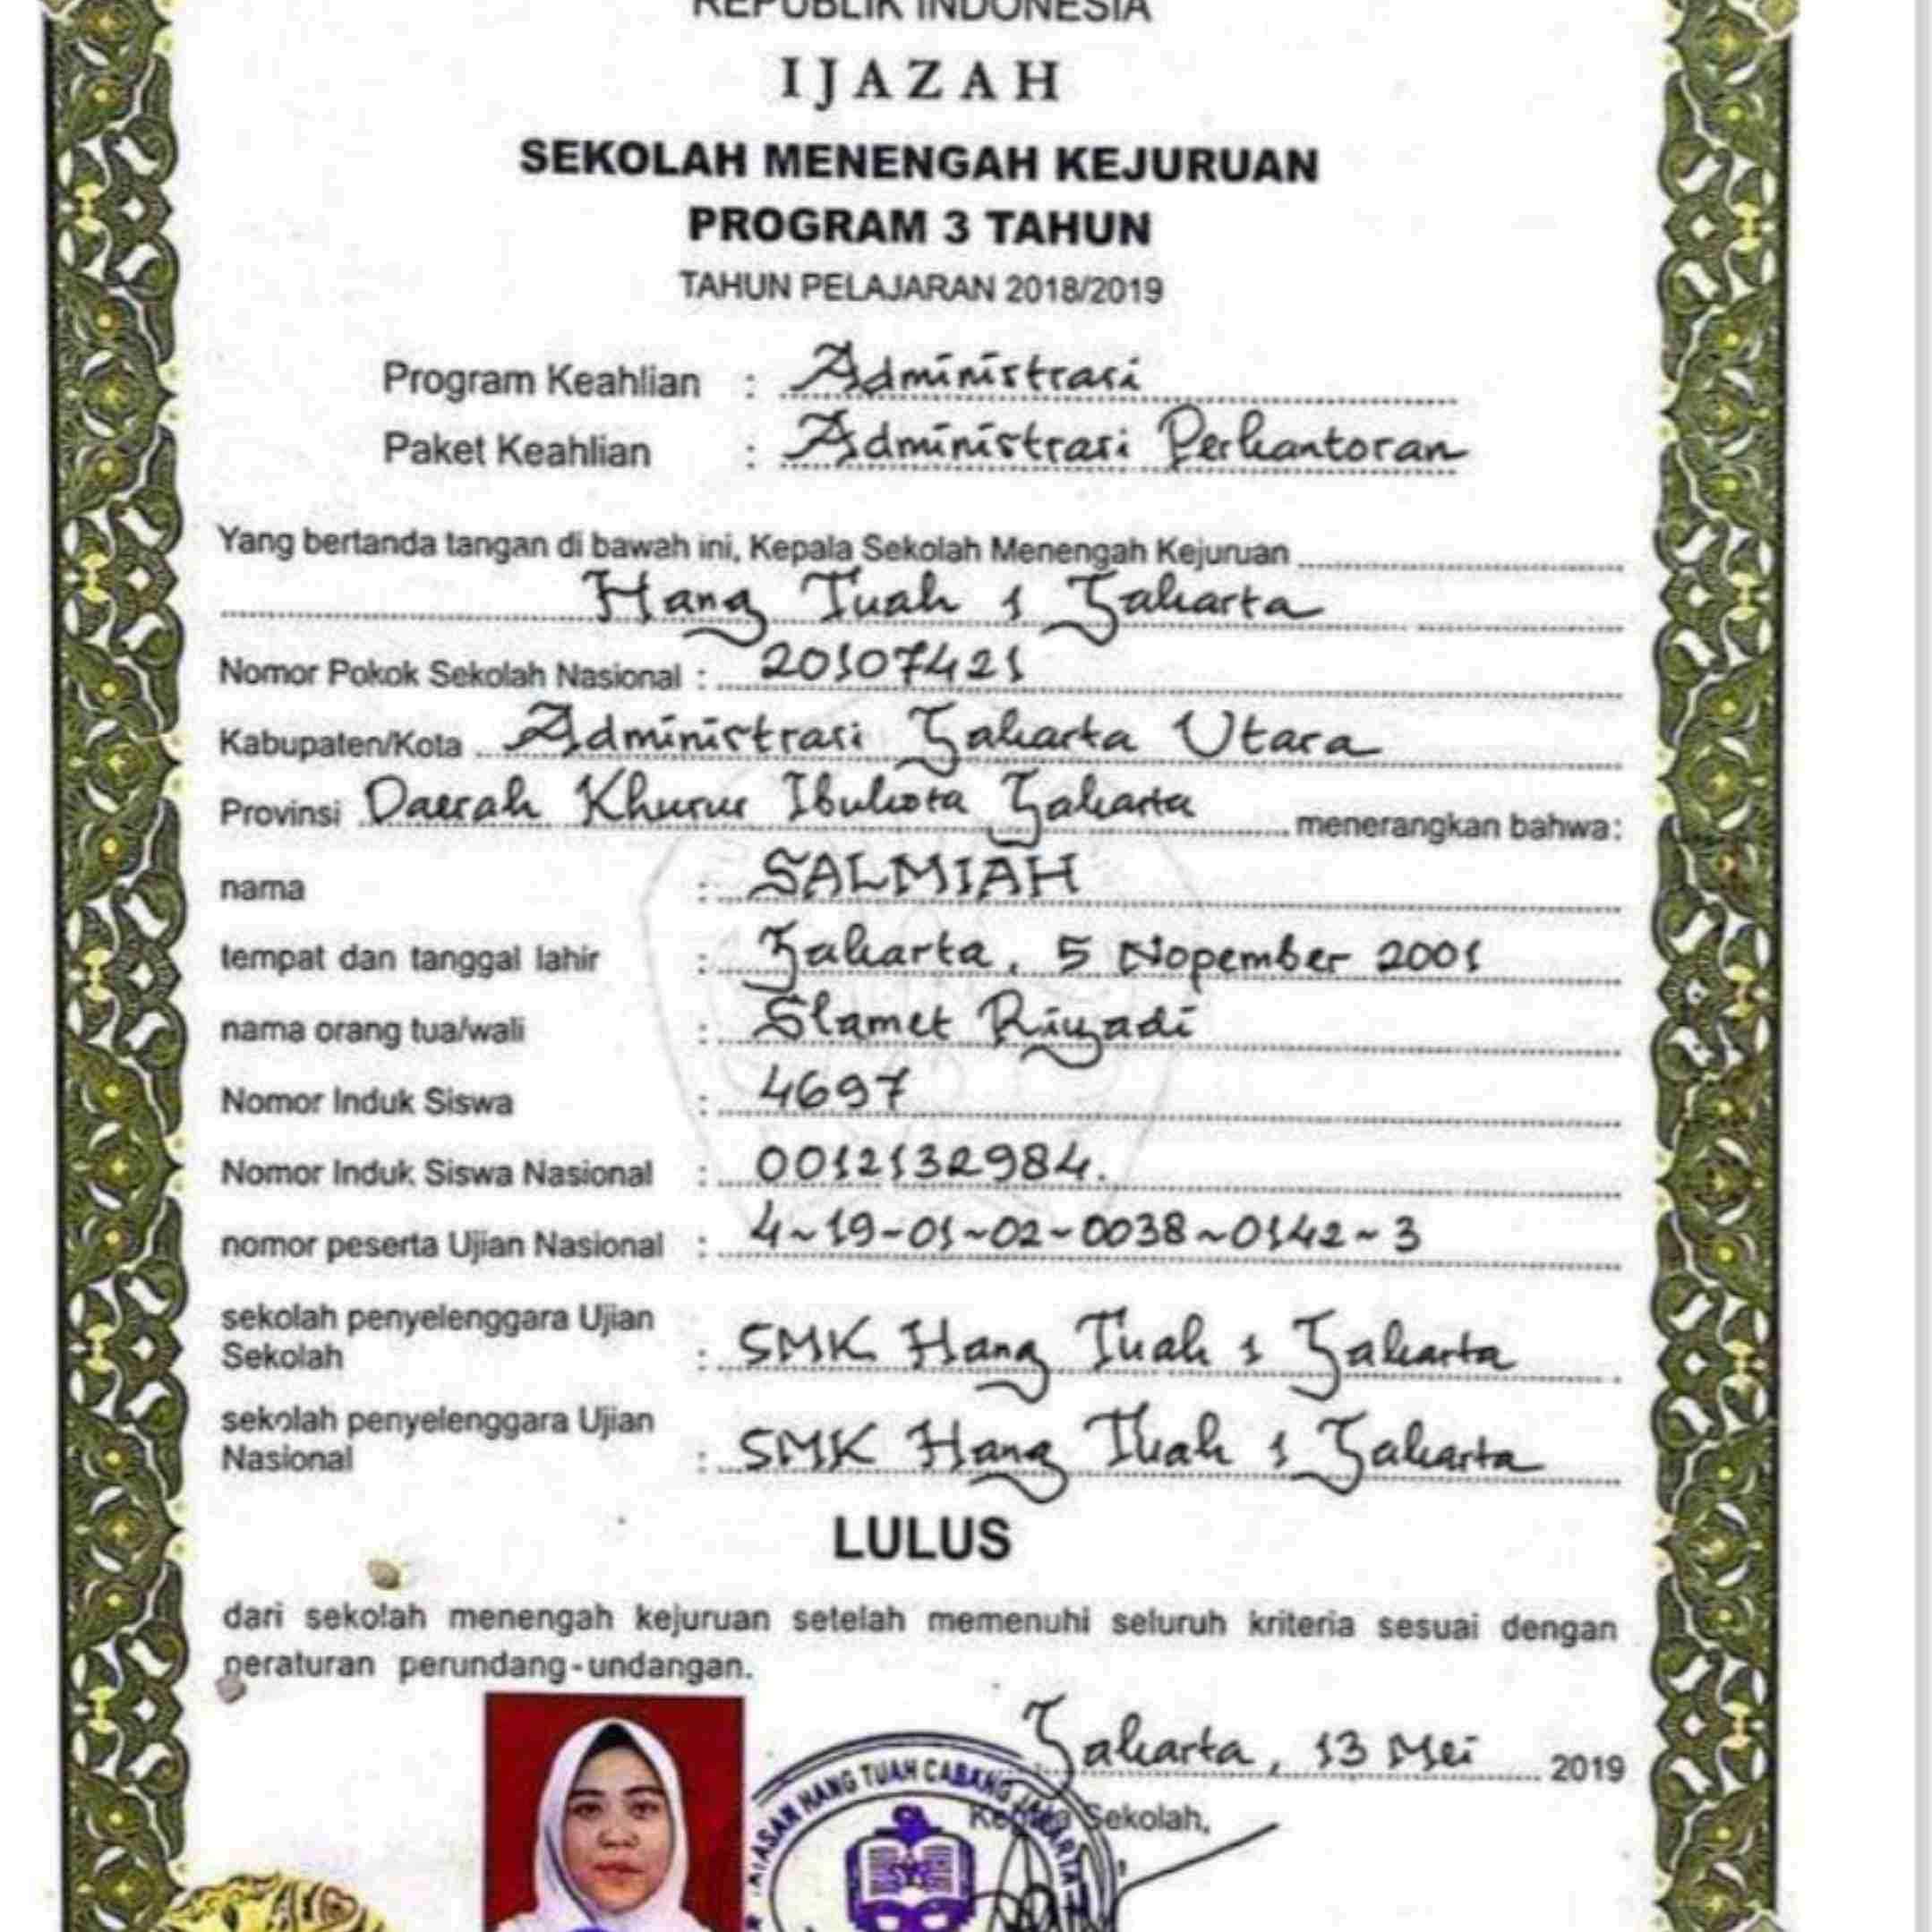 REPUBLIK INDONESIA
IJAZAH
SEKOLAH MENENGAH KEJURUAN
PROGRAM 3 TAHUN
TAHUN PELAJARAN 2018/2019
Program Keahlian : Administrasi
Paket Keahlian : Administrasi Perkantoran
Yang bertanda tangan di bawah ini, Kepala Sekolah Menengah Kejuruan
Hang Tuah 1 Jakarta
Nomor Pokok Sekolah Nasional : 20107421
Kabupaten/Kota Administrasi Jakarta Utara
Provinsi Daerah Khusus Ibukota Jakarta menerangkan bahwa:
nama : SALMIAH
tempat dan tanggal lahir : Jakarta, 5 Nopember 2001
nama orang tua/wali : Slamet Riyadi
Nomor Induk Siswa : 4697
Nomor Induk Siswa Nasional : 0012132984.
nomor peserta Ujian Nasional : 4-19-01-02-0038-0142-3
sekolah penyelenggara Ujian
Sekolah : SMK Hang Tuah 1 Jakarta
sekolah penyelenggara Ujian
Nasional : SMK Hang Tuah 1 Jakarta
LULUS
dari sekolah menengah kejuruan setelah memenuhi seluruh kriteria sesuai dengan
peraturan perundang-undangan.
Jakarta, 13 Mei 2019
Kepala Sekolah,
YAYASAN HANG TUAH CABANG JAKARTA